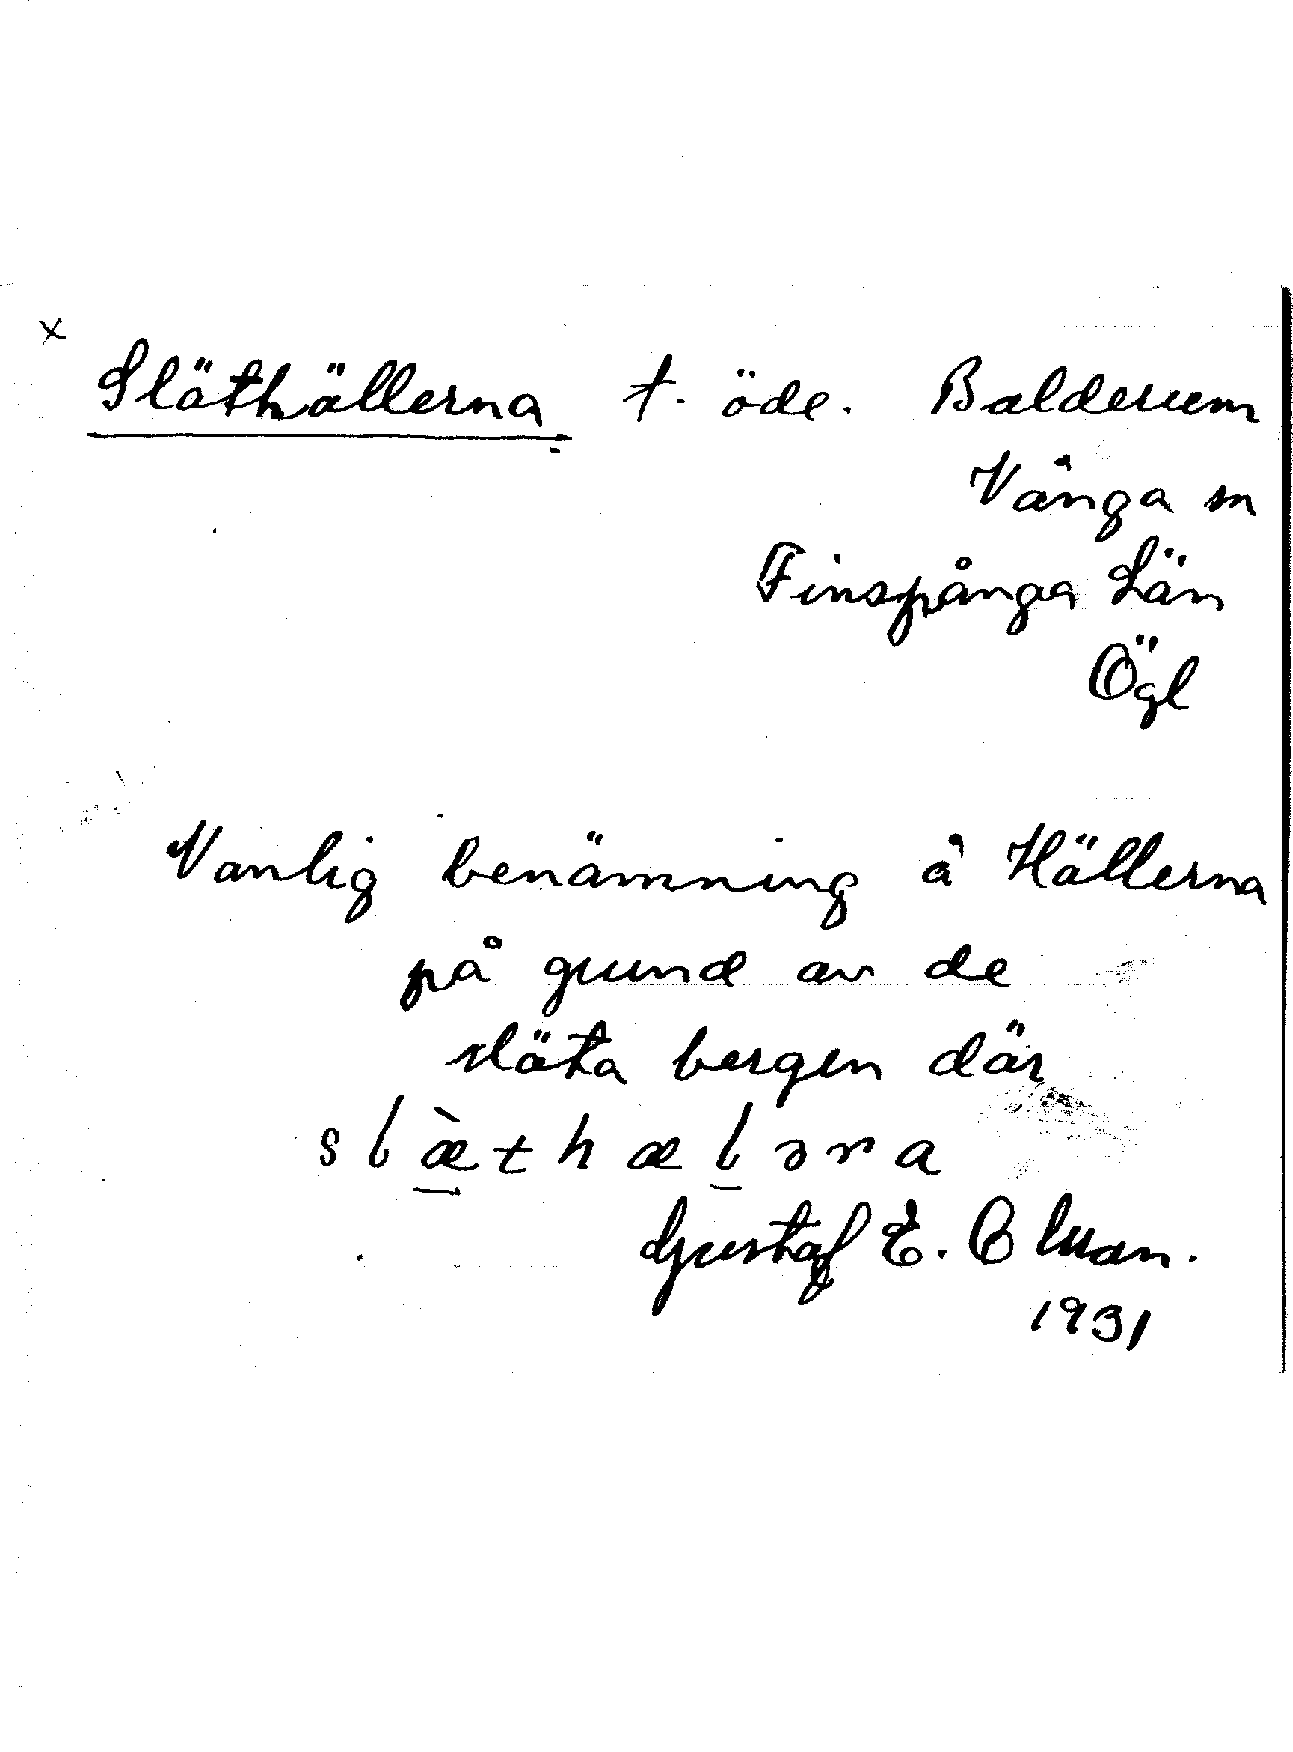 x
Släthällerna t. öde. Balderum
Vånga sn
Finspånga Län
Ögl
Vanlig benämning å Hällerna
på grund av de
släta bergen där
slæ̀thælәra
Gustaf E.
1931